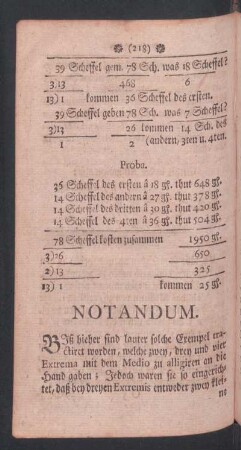 (218)
39 Scheffel gem. 78 Sch. was 18 Scheffel?
3) 13 468 6
13) 1 kommen 36 Scheffel des ersten.
39 Scheffel geben 78 Sch. was 7 Scheffel?
3) 13 26 kommen 14 Sch. des
1 2 (andern, 3ten u. 4ten.
Proba.
36 Scheffel des ersten â 18 gl. thut 648 gl.
14 Scheffel des andern â 27 gl. thut 378 gl.
14 Scheffel des dritten â 30 gl. thut 420 gl.
14 Scheffel des 4ten â 36 gl. thut 504 gl.
78 Scheffel kosten zusammen 1950 gl.
3) 26 650
2) 13 325
13) 1 kommen 25 gl.
NOTANDUM.
Biß hieher sind lauter solche Exempel tra-
ctiret worden, welche zwey, drey und vier
Extrema mit dem Medio zu alligiren an die
Hand gaben; Jedoch waren sie so eingerich-
tet, daß bey dreyen Extremis entweder zwey klei-
ne